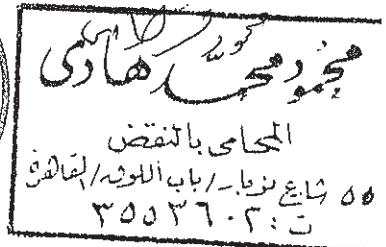 محمود محمد هاشمى
المحامى بالنقض
٥٥ شارع نوبار / باب اللوق / القاهرة
ت : ٣٥٥٣٦٠٢